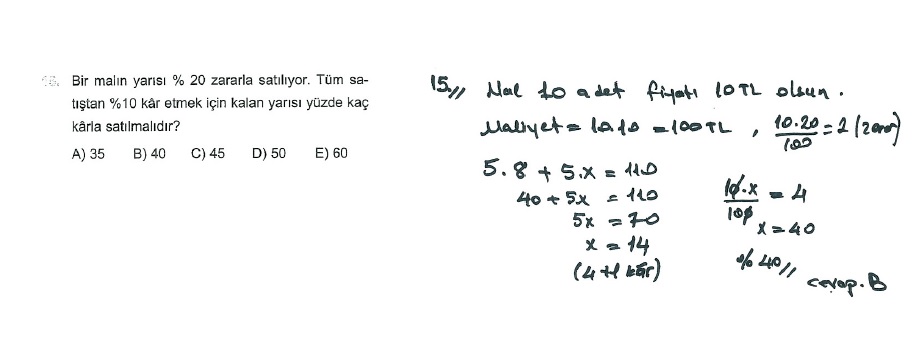 15. Bir malın yarısı % 20 zararla satılıyor. Tüm sa-
tıştan %10 kâr etmek için kalan yarısı yüzde kaç
kârla satılmalıdır?
A) 35 B) 40 C) 45 D) 50 E) 60
15,, Mal 10 adet fiyatı 10TL olsun.
Maliyet = 10.10 = 100TL , 10.20/100 = 2 (zarar)
5.8 + 5.x = 110
40 + 5x = 110
5x = 70
x = 14
(4 tl kâr)
10.x/100 = 4
x = 40
% 40,,
cevap.B